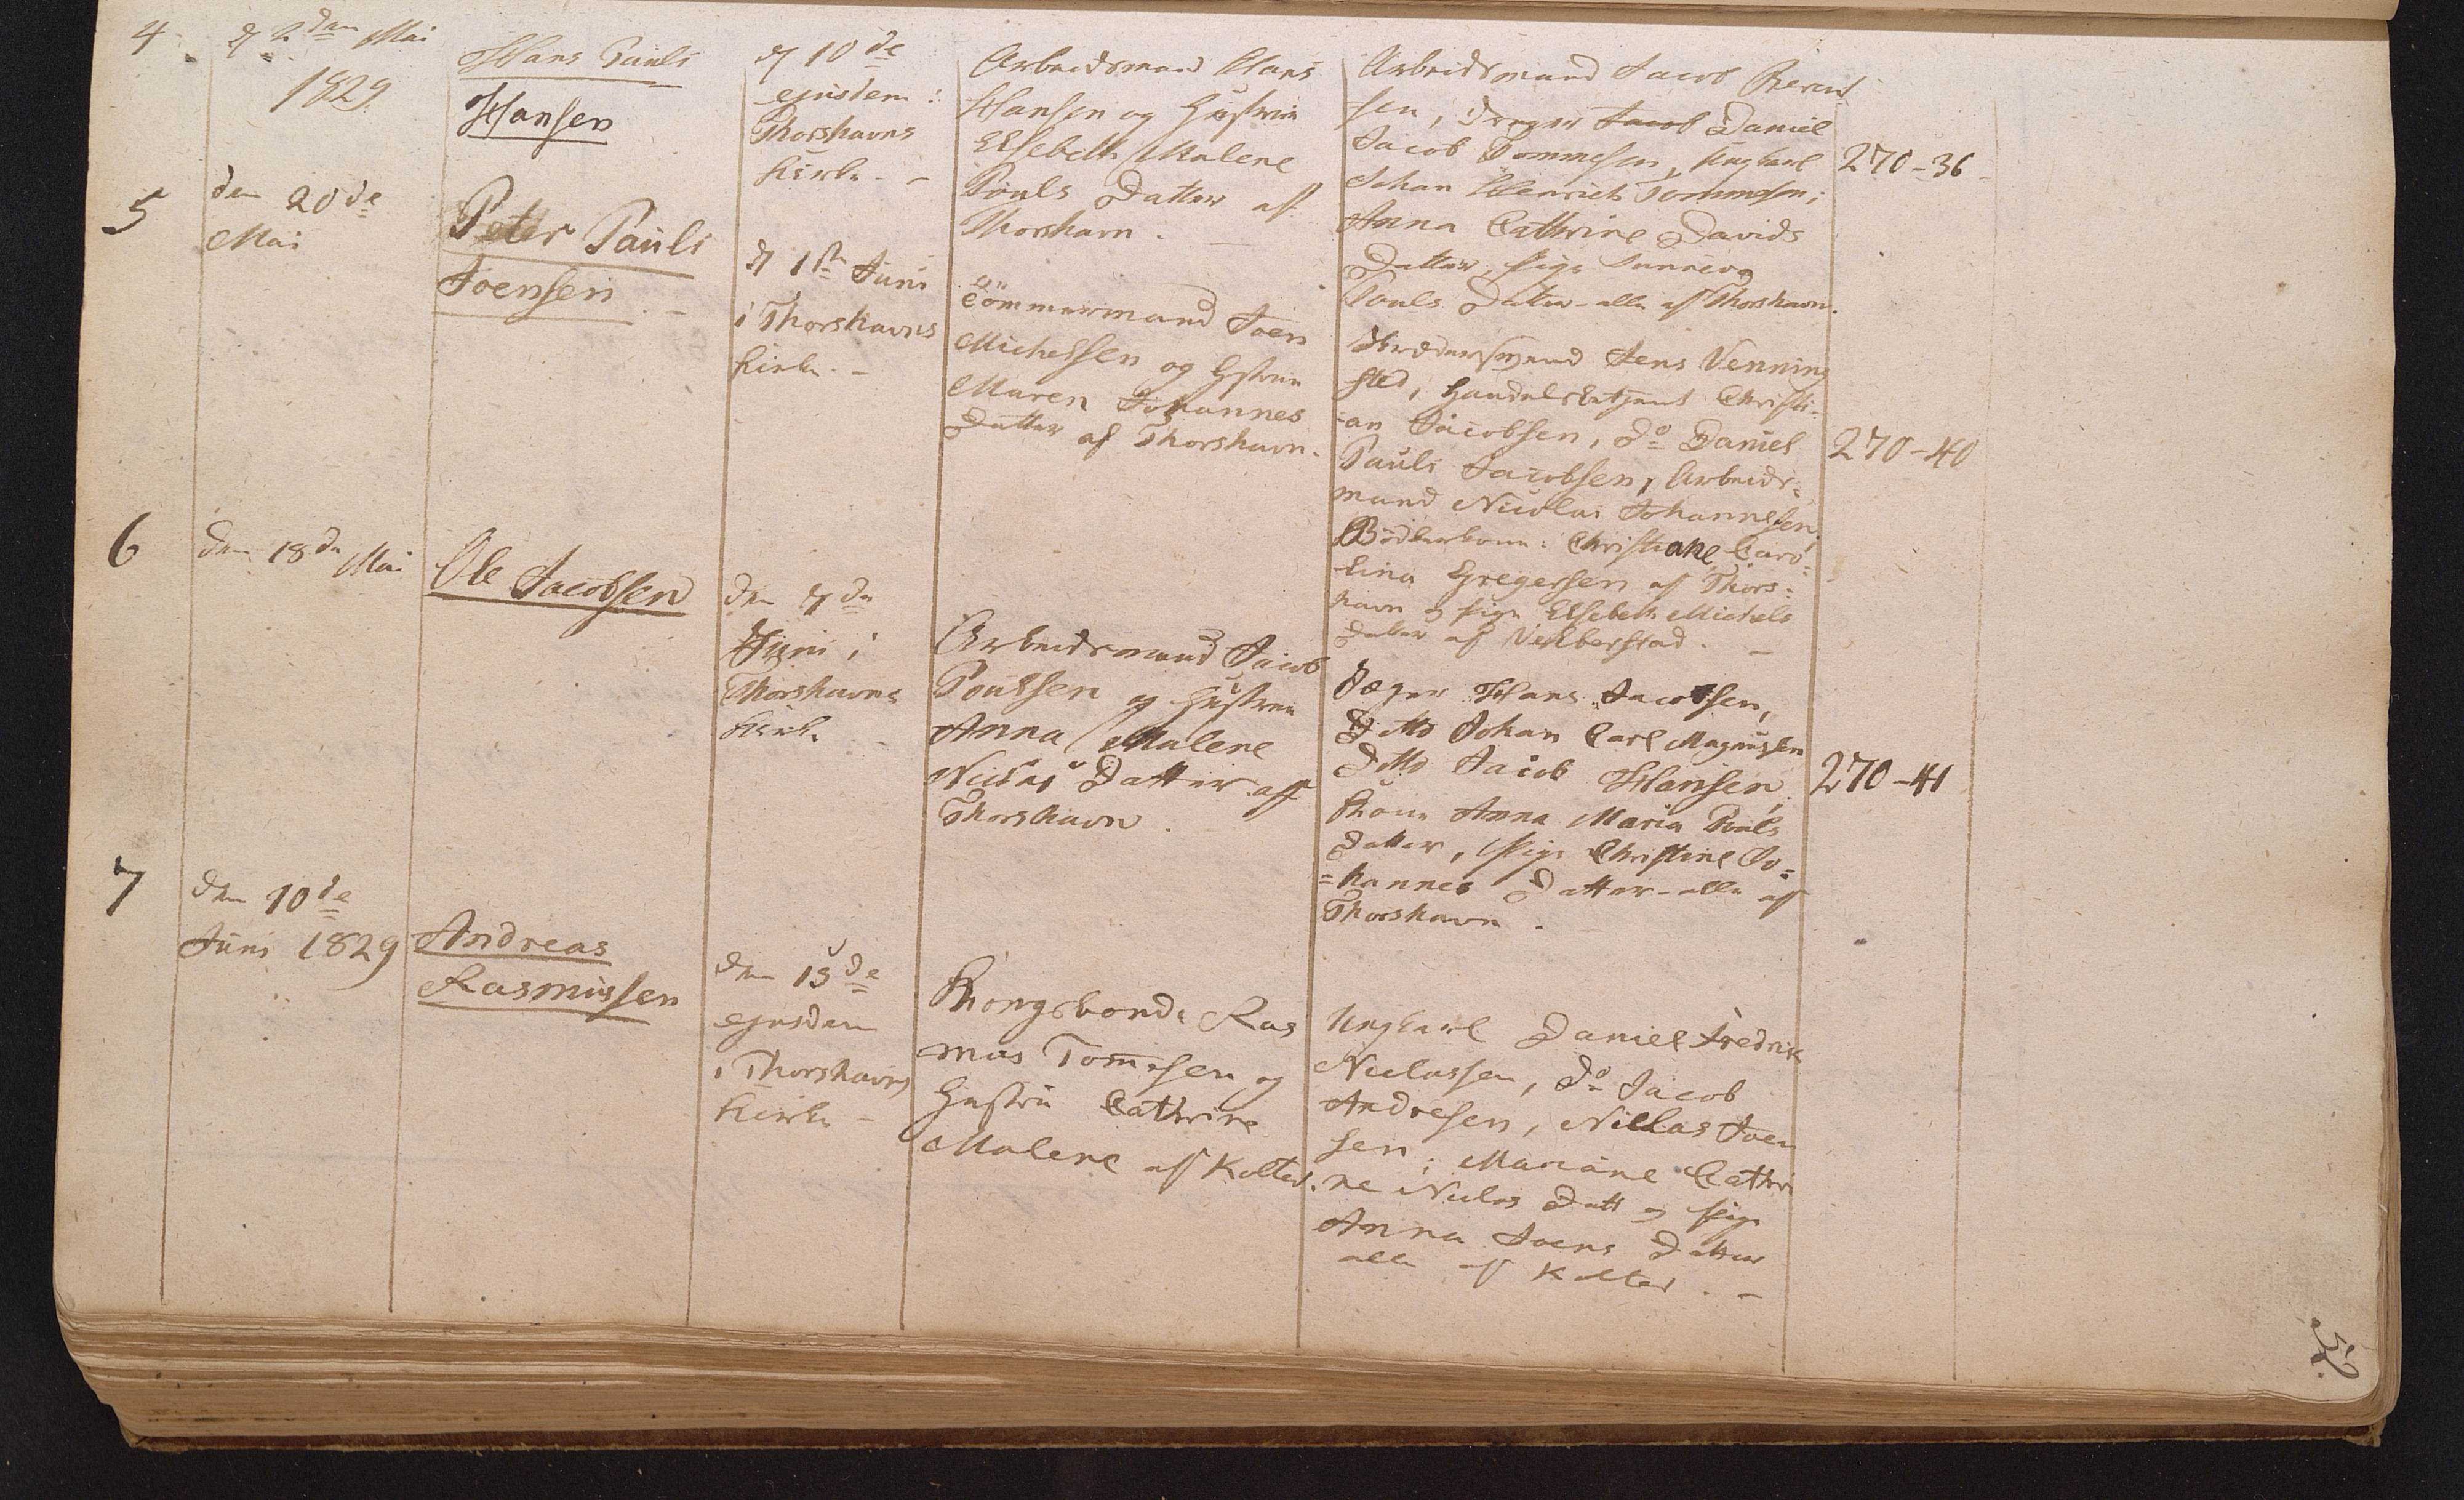 4
d 2den Mai
1829.
Hans Pauli
Hansen
d 10de
ejusdem i
Thorshavns
Kirke. -
Arbeidsmand Hans
Hansen og Hustrue
Elsebeth Malene
Pouls Datter af
Thorshavn. -
Arbeidsmand Jacob Berent
sen, Jacob Daniel
Jacob Tommesen, Ungkarl
Johan Henrich Tommesen;
Anna Cathrine Davids
Datter, Pige Sunneva
Pouls Datter - alle af Thorshavn.
270-36
5
den 20de
Mai
Peter Pauli
Joensen. -
d 1ste Juni
i Thorshavns
Kirke. -
Tömmermand Joen
Michelsen og Hstrue
Maren Johannes
Datter af Thorshavn.
Jens Venning
sted, Handelsbetjent Christi-
-an Jacobsen, Do Daniel
Pauli Jacobsen, Arbeids-
mand Nicolai Johannesen,
Bödkerkone: Christiane Caro-
-lina Gregersen af Thors-
havn og Pige Elsebeth Michels
Datter af Velberstad. -
270-40
6
den 18de Mai
Ole Jacobsen
den 7de
Juni i
Thorshavns
Kirke
Arbeidsmand Jacob
Poulsen og Hustrue
Anna Malene
Niclas Datter aff
Thorshavn.
Jæger Hans Jacobsen,
Ditto Johan Carl Magnusen
Ditto Jacob Hansen,
Kone Anna Maria Pouls
Datter, Pige Christine Jo=
=hannes Datter - alle af
Thorshavn.
270-41
7
den 10de
Juni 1829
Andreas
Rasmussen
den 15de
ejusdem
i Thorshavns
Kirke -
Kongsbonde Ras
mus Tomesen og
Hustru Cathrine
Malene af Kolter.
Ungkarl Daniel Fredrik
Niclassen, Do Jacob
Andresen, Niclas Joen
sen; Mariane Cathri
ne Niclas Datt og Pige
Anna Joens Datter
alle af Kolter. -
52.